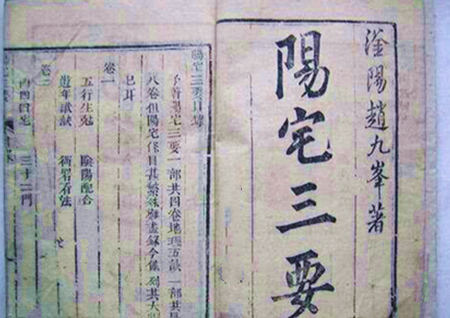 滏陽趙九峯著
陽宅三要
陽宅三要目錄
予著陽宅三要一部共四卷地理五訣一部共
八卷但陽宅條目甚繁殊難盡錄今僅列其大
已耳
卷一
五行生剋 陰陽配合
遊年歌訣 衙署看法
卷二
四宅 三十二門